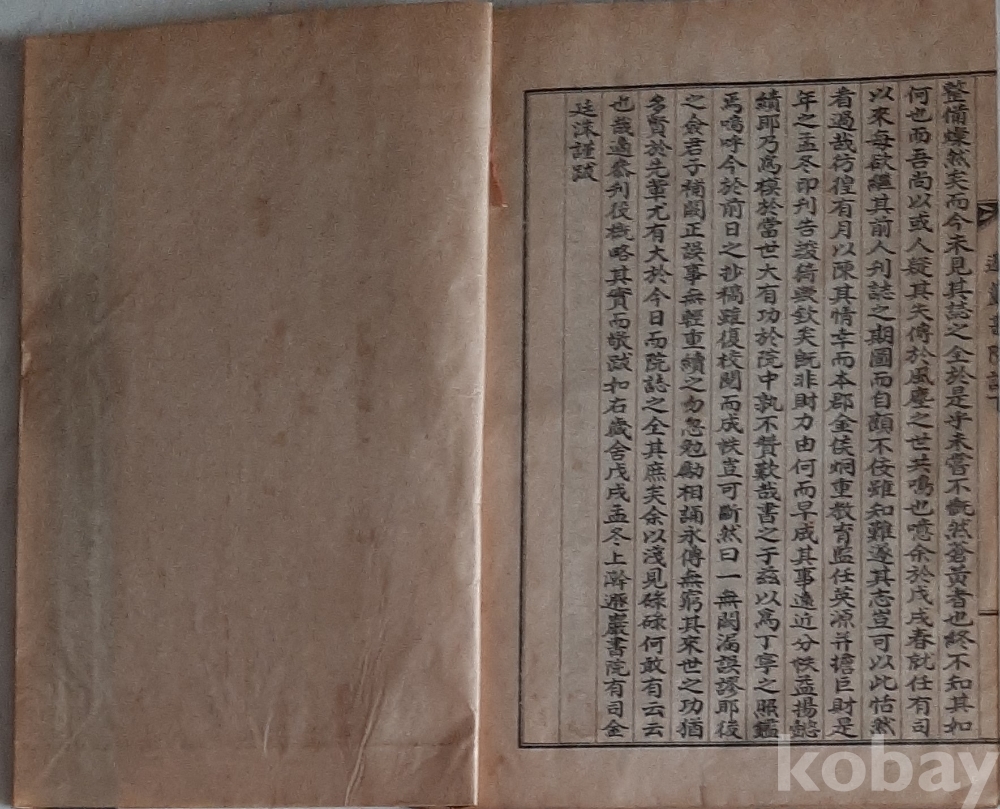 整備燦然矣而今未見其誌之全於是乎未嘗不慨然蒼黃者也終不知其如
何也而吾尚以或人疑其失傳於風塵之世共鳴也噫余於戊戌春就任有司
以來每欲繼其前人刊誌之期圖而自顧不侫雖知難遂其志豈可以此怙然
者過哉彷徨有月以陳其情幸而本郡金侯炯重教育監任英源幷擔巨財是
年之孟冬印刊告竣猗歟欽矣旣非財力由何而早成其事遠近分帙益揚懿
績耶乃爲模於當世大有功於院中孰不贊歎哉書之于玆以爲丁寧之照鑑
焉嗚呼今於前日之抄稿雖復校閱而成帙豈可斷然曰一無闕漏誤謬耶後
之僉君子補闕正誤事無輕重續之勿怠勉勵相誦永傳無窮其來世之功猶
多賢於先輩尤有大於今日而院誌之全其庶矣余以淺見碌碌何敢有云云
也哉適叅刊役概略其實而敬跋如右歲舍戊戌孟冬上澣遯巖書院有司金
廷洙謹跋
遯巖書院誌下
kobay